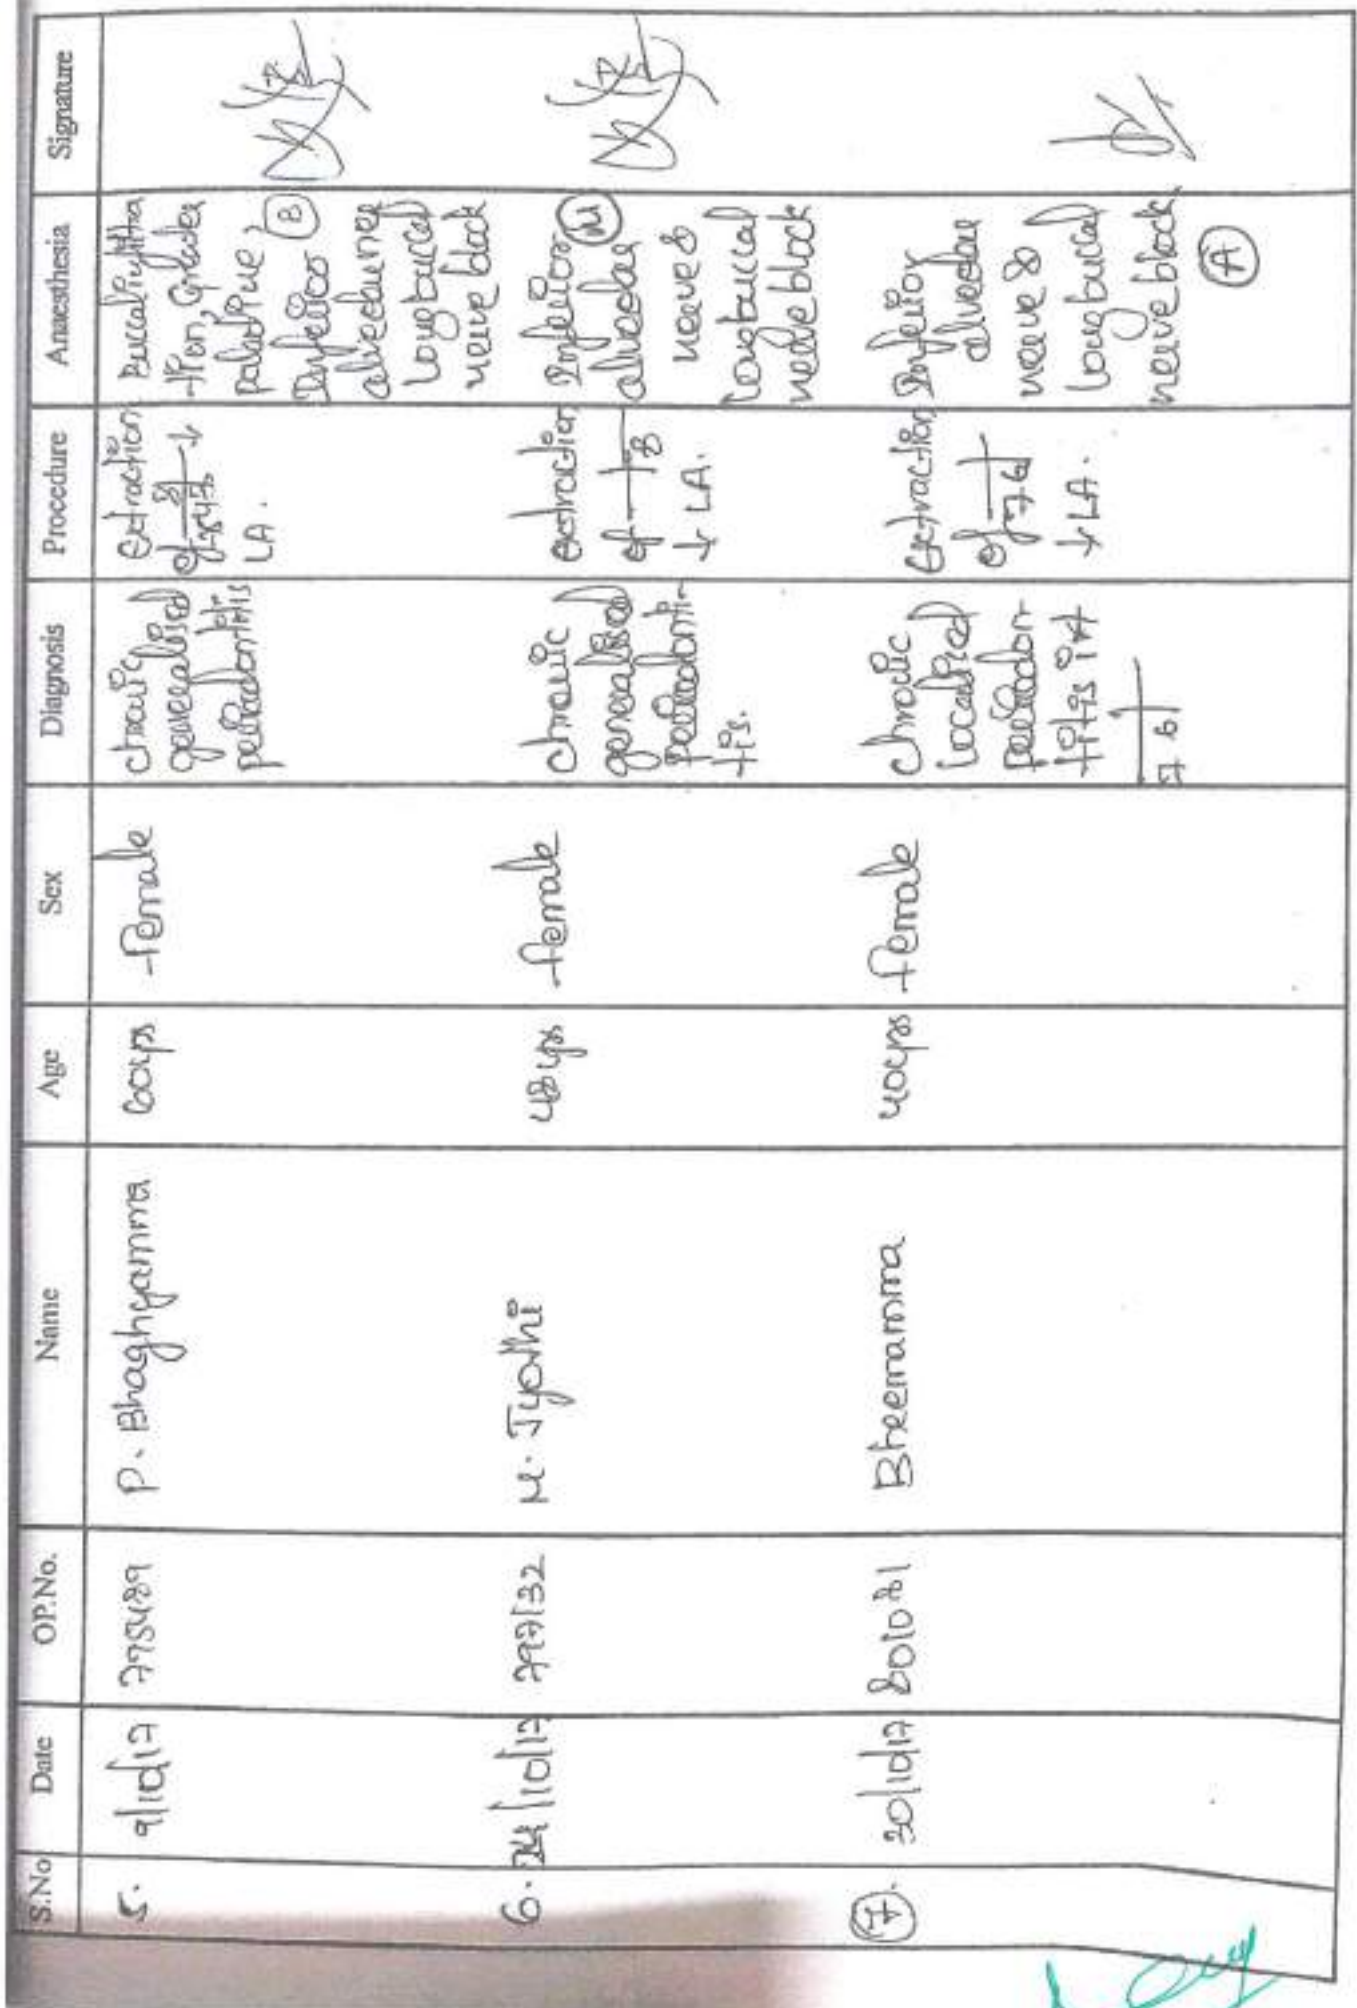 S.No Date OP.No. Name Age Sex Diagnosis Procedure Anaesthesia Signature
5. 9/10/17 775489 P. Bhaghyamma 60yrs Female
chronic
generalised
periodontitis
extraction
of
LA.
palatine, B
Inferior
Long buccal
nerve block
6. 24/10/17 797132 M. Jyothi 48yrs female
chronic
generalised
periodonti-
tis.
extraction
of 8
↓ LA.
Inferior M
alveolar
nerve &
Long buccal
nerve block
7. 30/10/17 801081 Bheemamma 40yrs female
chronic
localised
periodon
titis irt
7 6
extraction
of 76
↓ LA.
Inferior
alveolar
nerve &
Long buccal
nerve block
A